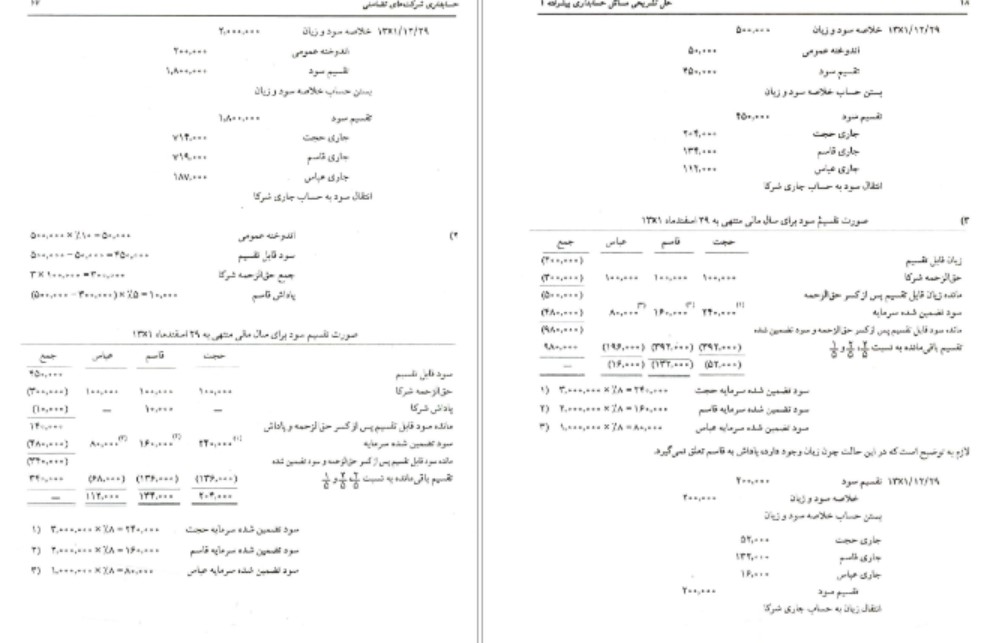 حسابداری شرکت‌های تضامنی
۱۳X۱/۱۲/۲۹ خلاصه سود و زیان ۲,۰۰۰,۰۰۰
اندوخته عمومی ۲۰۰,۰۰۰
تقسیم سود ۱,۸۰۰,۰۰۰
بستن حساب خلاصه سود و زیان
تقسیم سود ۱,۸۰۰,۰۰۰
جاری حجت ۷۱۴,۰۰۰
جاری قاسم ۷۱۹,۰۰۰
جاری عباس ۱۸۷,۰۰۰
انتقال سود به حساب جاری شرکا
۴)
اندوخته عمومی ۵۰۰,۰۰۰ × ٪۱۰ = ۵۰,۰۰۰
سود قابل تقسیم ۵۰۰,۰۰۰ − ۵۰,۰۰۰ = ۴۵۰,۰۰۰
جمع حق‌الزحمه شرکا ۳ × ۱۰۰,۰۰۰ = ۳۰۰,۰۰۰
پاداش قاسم (۵۰۰,۰۰۰ − ۳۰۰,۰۰۰) × ٪۵ = ۱۰,۰۰۰
صورت تقسیم سود برای سال مالی منتهی به ۲۹ اسفندماه ۱۳X۱
حجت قاسم عباس جمع
سود قابل تقسیم ۴۵۰,۰۰۰
حق‌الزحمه شرکا ۱۰۰,۰۰۰ ۱۰۰,۰۰۰ ۱۰۰,۰۰۰ (۳۰۰,۰۰۰)
پاداش شرکا — ۱۰,۰۰۰ — (۱۰,۰۰۰)
مانده سود قابل تقسیم پس از کسر حق‌الزحمه و پاداش ۱۴۰,۰۰۰
سود تضمین شده سرمایه ۲۴۰,۰۰۰(۱) ۱۶۰,۰۰۰(۲) ۸۰,۰۰۰(۳) (۴۸۰,۰۰۰)
مانده سود قابل تقسیم پس از کسر حق‌الزحمه و سود تضمین شده (۳۴۰,۰۰۰)
تقسیم باقی‌مانده به نسبت ۲/۵، ۲/۵ و ۱/۵ (۱۳۶,۰۰۰) (۱۳۶,۰۰۰) (۶۸,۰۰۰) ۳۴۰,۰۰۰
۲۰۴,۰۰۰ ۱۳۴,۰۰۰ ۱۱۲,۰۰۰ —
سود تضمین شده سرمایه حجت ۱) ۳,۰۰۰,۰۰۰ × ٪۸ = ۲۴۰,۰۰۰
سود تضمین شده سرمایه قاسم ۲) ۲,۰۰۰,۰۰۰ × ٪۸ = ۱۶۰,۰۰۰
سود تضمین شده سرمایه عباس ۳) ۱,۰۰۰,۰۰۰ × ٪۸ = ۸۰,۰۰۰
۱۸ حل تشریحی مسائل حسابداری پیشرفته ۱
۱۳X۱/۱۲/۲۹ خلاصه سود و زیان ۵۰۰,۰۰۰
اندوخته عمومی ۵۰,۰۰۰
تقسیم سود ۴۵۰,۰۰۰
بستن حساب خلاصه سود و زیان
تقسیم سود ۴۵۰,۰۰۰
جاری حجت ۲۰۴,۰۰۰
جاری قاسم ۱۳۴,۰۰۰
جاری عباس ۱۱۲,۰۰۰
انتقال سود به حساب جاری شرکا
۳) صورت تقسیم سود برای سال مالی منتهی به ۲۹ اسفندماه ۱۳X۱
حجت قاسم عباس جمع
زیان قابل تقسیم (۲۰۰,۰۰۰)
حق‌الزحمه شرکا ۱۰۰,۰۰۰ ۱۰۰,۰۰۰ ۱۰۰,۰۰۰ (۳۰۰,۰۰۰)
مانده زیان قابل تقسیم پس از کسر حق‌الزحمه (۵۰۰,۰۰۰)
سود تضمین شده سرمایه ۲۴۰,۰۰۰(۱) ۱۶۰,۰۰۰(۲) ۸۰,۰۰۰(۳) (۴۸۰,۰۰۰)
مانده سود قابل تقسیم پس از کسر حق‌الزحمه و سود تضمین شده (۹۸۰,۰۰۰)
تقسیم باقی‌مانده به نسبت ۲/۵، ۲/۵ و ۱/۵ (۳۹۲,۰۰۰) (۳۹۲,۰۰۰) (۱۹۶,۰۰۰) ۹۸۰,۰۰۰
(۵۲,۰۰۰) (۱۳۲,۰۰۰) (۱۶,۰۰۰) —
سود تضمین شده سرمایه حجت ۱) ۳,۰۰۰,۰۰۰ × ٪۸ = ۲۴۰,۰۰۰
سود تضمین شده سرمایه قاسم ۲) ۲,۰۰۰,۰۰۰ × ٪۸ = ۱۶۰,۰۰۰
سود تضمین شده سرمایه عباس ۳) ۱,۰۰۰,۰۰۰ × ٪۸ = ۸۰,۰۰۰
لازم به توضیح است که در این حالت چون زیان وجود دارد، پاداش به قاسم تعلق نمی‌گیرد.
۱۳X۱/۱۲/۲۹ تقسیم سود ۲۰۰,۰۰۰
خلاصه سود و زیان ۲۰۰,۰۰۰
بستن حساب خلاصه سود و زیان
جاری حجت ۵۲,۰۰۰
جاری قاسم ۱۳۲,۰۰۰
جاری عباس ۱۶,۰۰۰
تقسیم سود ۲۰۰,۰۰۰
انتقال زیان به حساب جاری شرکا